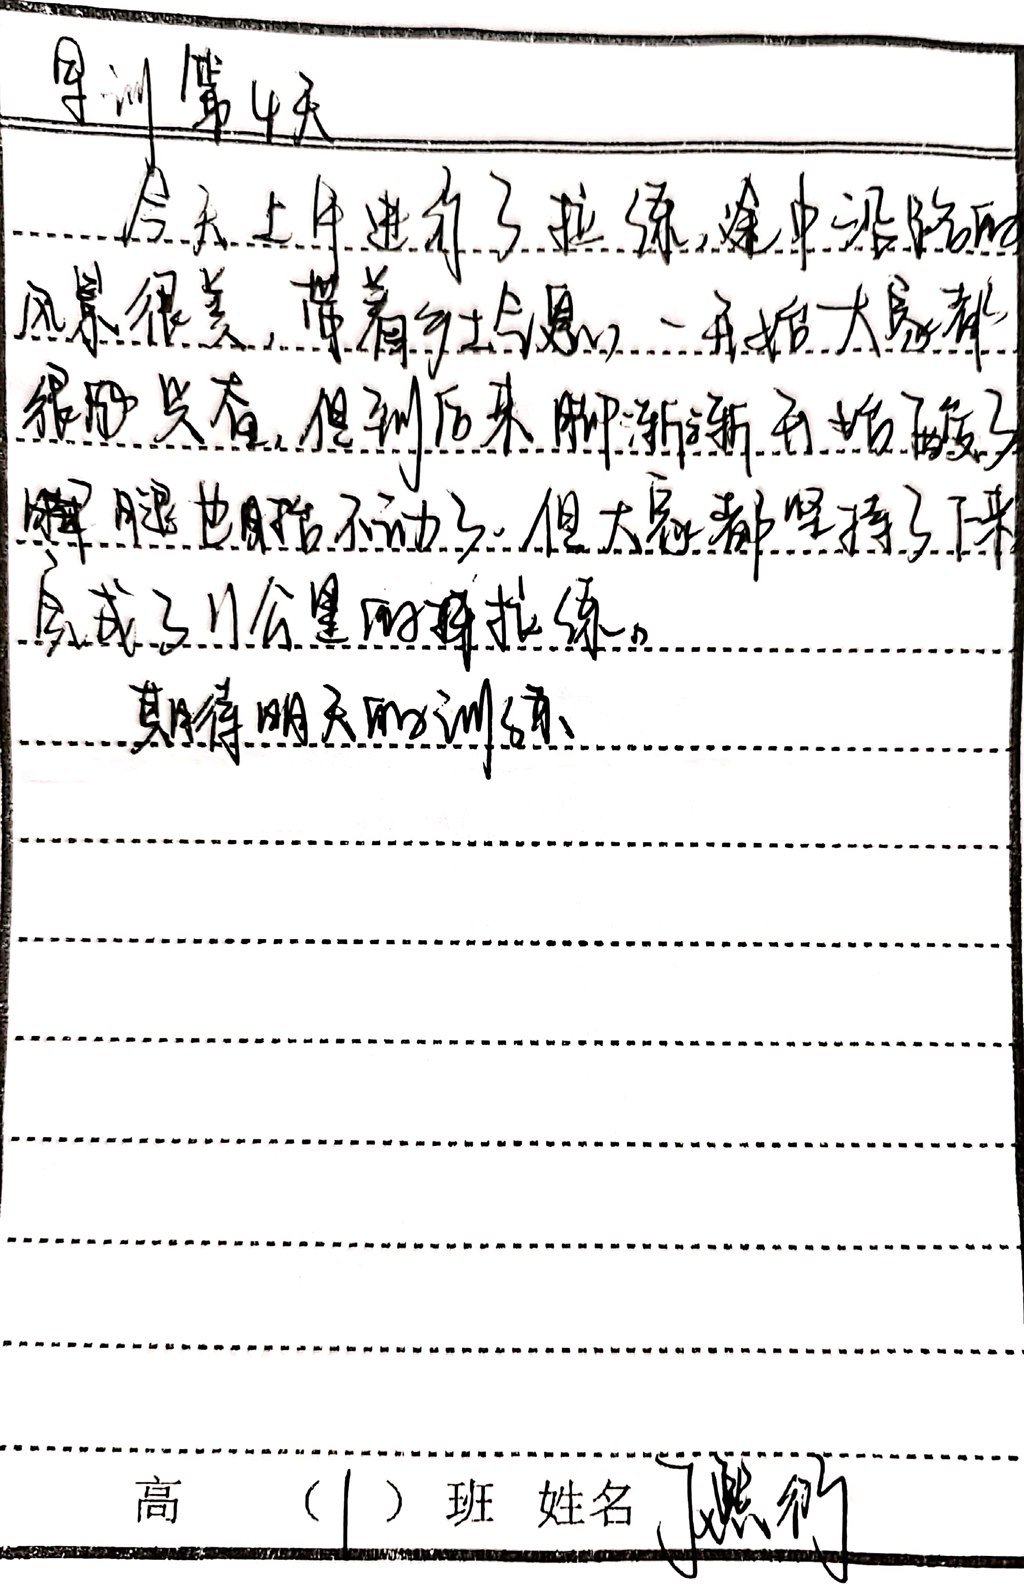 军训第4天
今天上午进行了拉练,途中沿路的
风景很美,带着乡土气息,一开始大家都
很兴奋,但到后来脚渐渐开始酸了
腿也抬不动了.但大家都坚持了下来
完成了11公里的拉练。
期待明天的训练、
高 (1)班 姓名